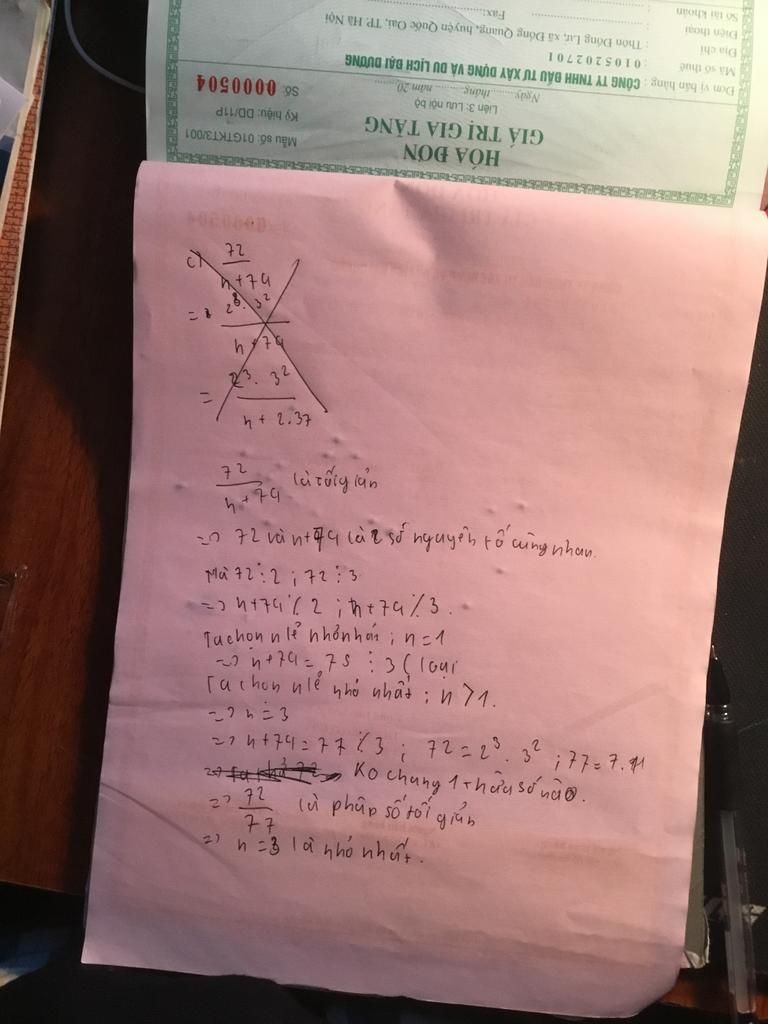 Số tài khoản
Điện thoại : Fax:
Địa chỉ : Thôn Đồng Lư, xã Đồng Quang, huyện Quốc Oai, TP. Hà Nội
Mã số thuế : 0105202701
Đơn vị bán hàng : CÔNG TY TNHH ĐẦU TƯ XÂY DỰNG VÀ DU LỊCH ĐẠI DƯƠNG
Ngày tháng năm 20
Số: 0000504
Liên 3: Lưu nội bộ
Ký hiệu: DD/11P
GIÁ TRỊ GIA TĂNG
Mẫu số: 01GTKT3/001
HÓA ĐƠN
c) 72
n+74
= 2^3. 3^2
n+74
= 2^3. 3^2
n + 2.37
72
n+74 là tối giản
=> 72 và n+74 là 2 số nguyên tố cùng nhau.
Mà 72 ⋮ 2 ; 72 ⋮ 3
=> n+74 ⋮̸ 2 ; n+74 ⋮̸ 3.
Ta chọn n lẻ nhỏ nhất ; n=1
=> n+74 = 75 ⋮ 3 ( loại
Ta chọn n lẻ nhỏ nhất ; n > 1.
=> n = 3
=> n+74 = 77 ⋮̸ 3 ; 72 = 2^3. 3^2 ; 77 = 7.11
Ko chung 1 thừa số nào.
=> 72
77 là phân số tối giản
=> n = 3 là nhỏ nhất.